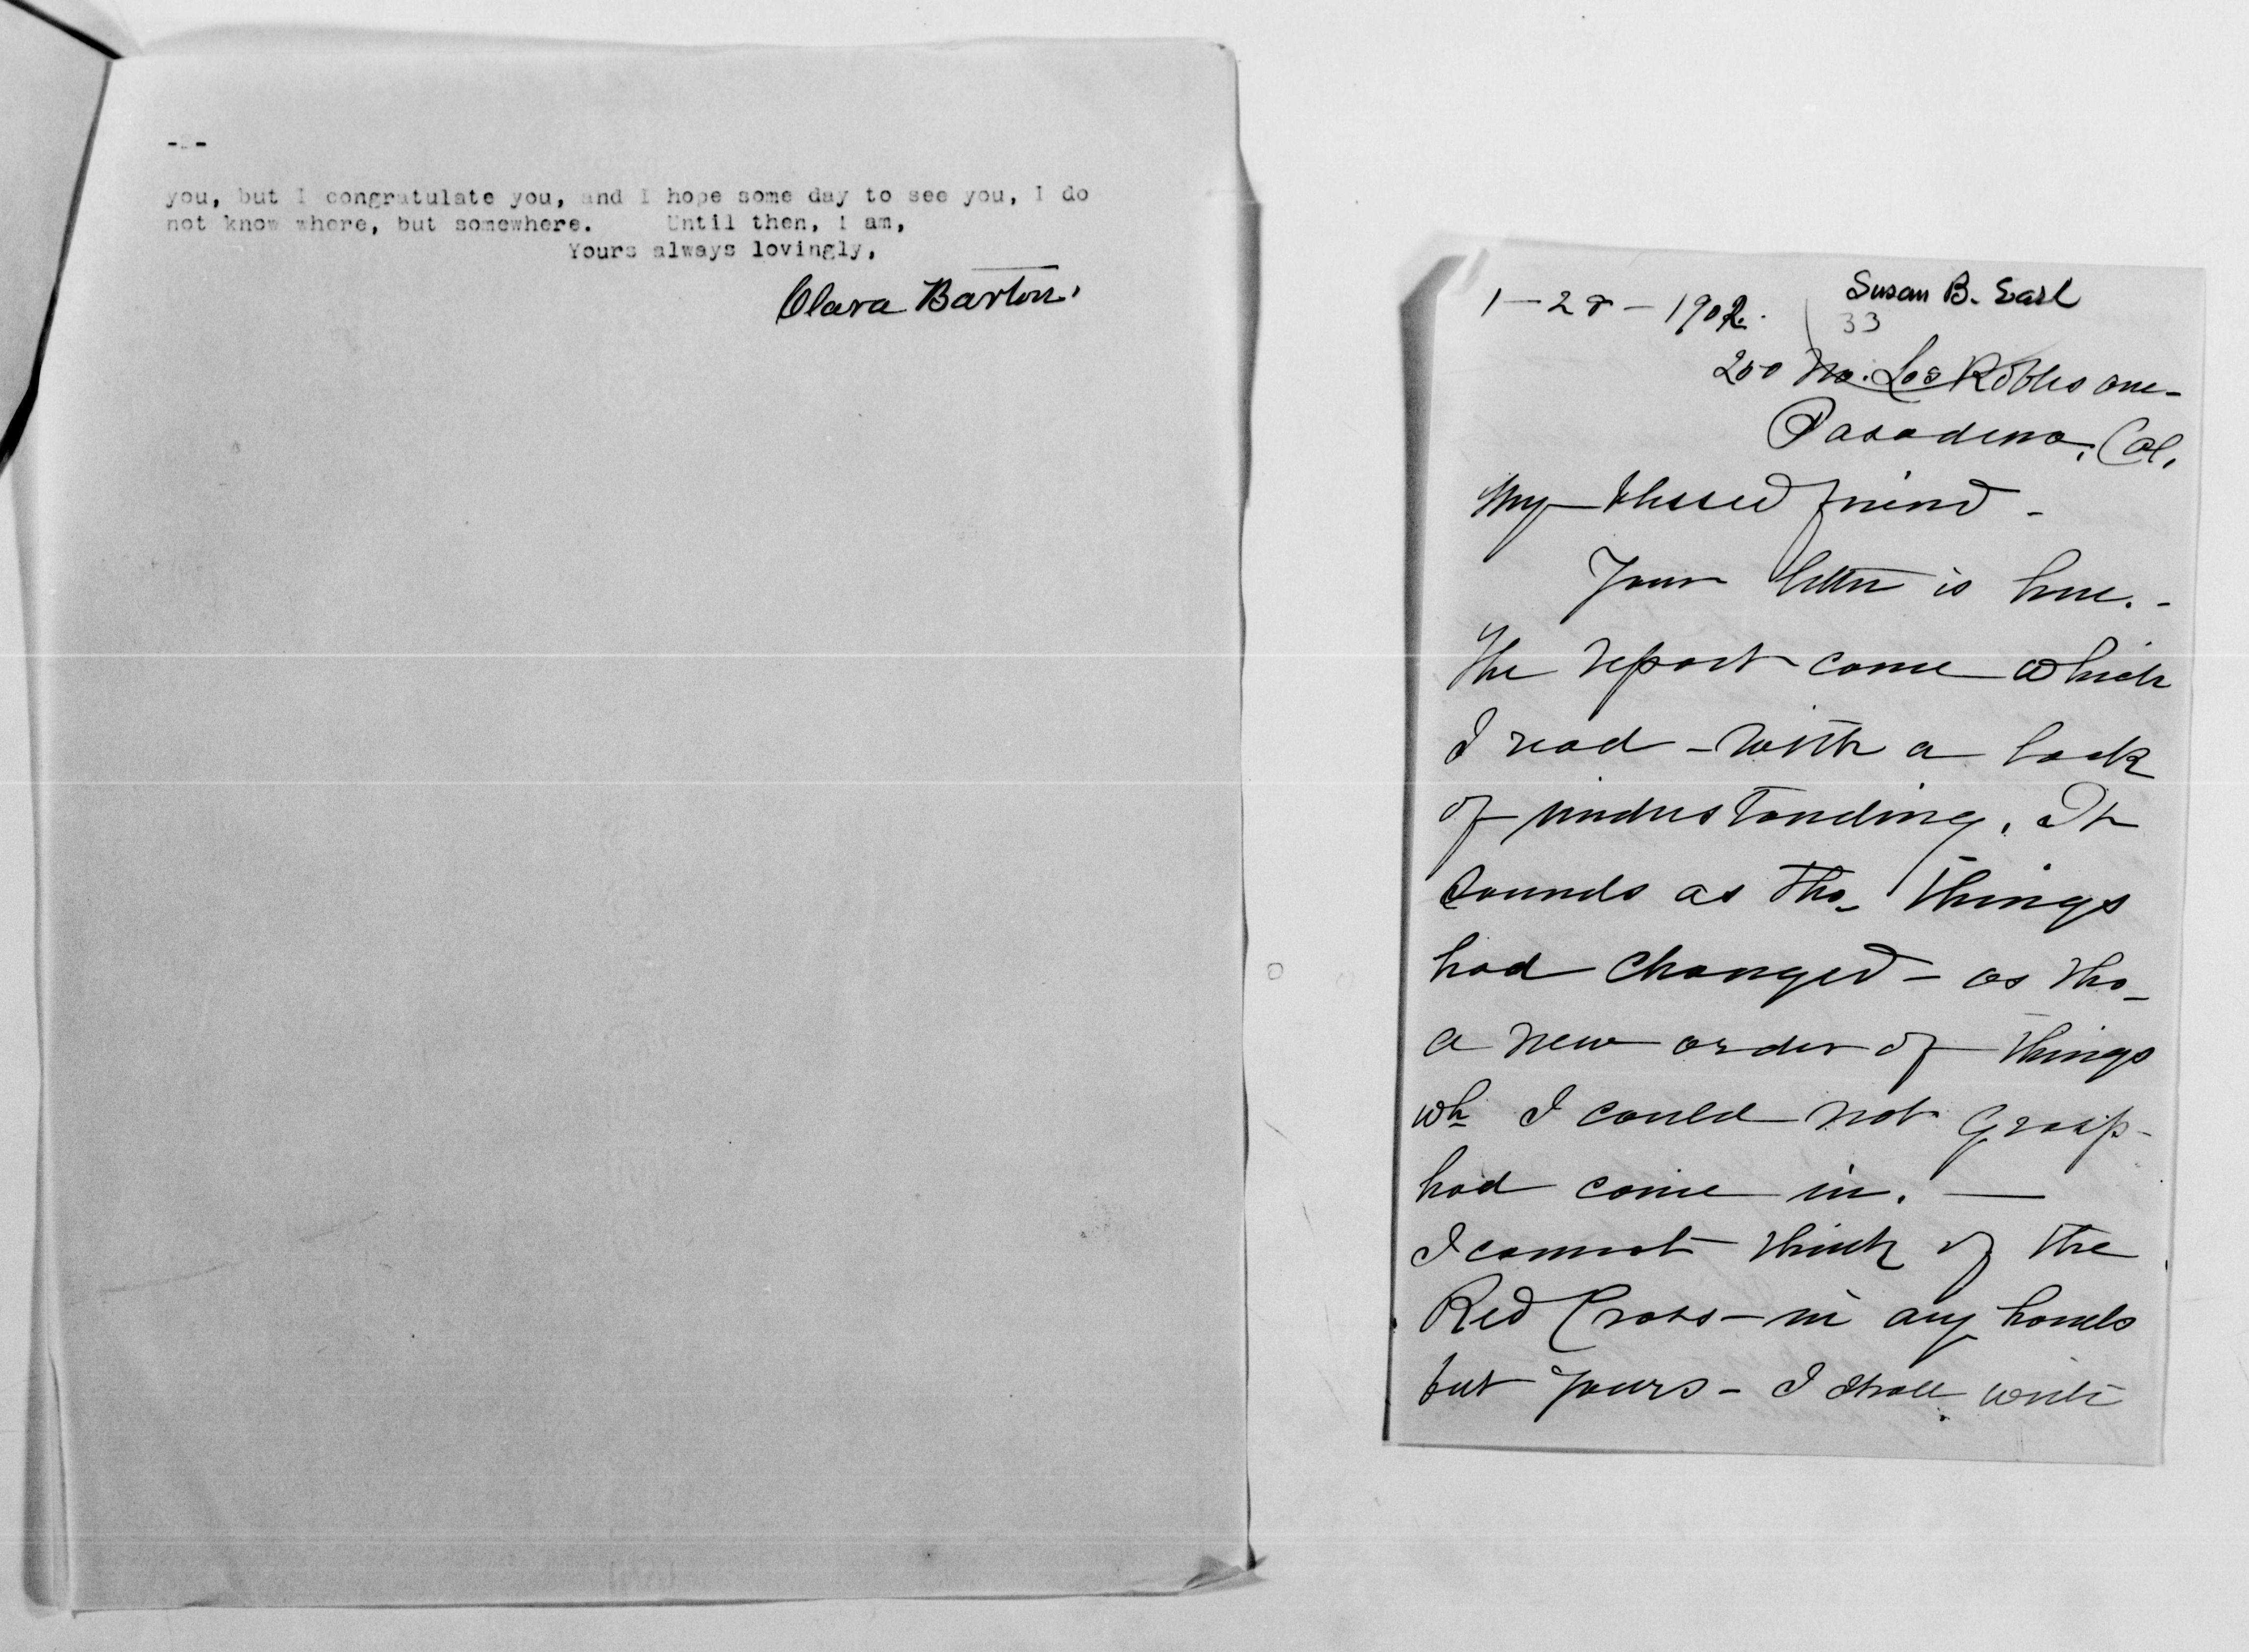 -2-
you, but I congratulate you, and I hope some day to see you, I do
not know where, but somewhere. Until then, I am,
Yours always lovingly,
Clara Barton.
Susan B. Earl
1-28-1902.
33
200 No. Los Robles ave-
Pasadena, Cal.
My blessed friend -
Your letter is here. -
The report came which
I read - with a lack
of understanding. It
sounds as tho- things
had changed - as tho-
a new order of things
wh I could not grasp-
had come in. —
I cannot think of the
Red Cross - in any hands
but yours - I shall write